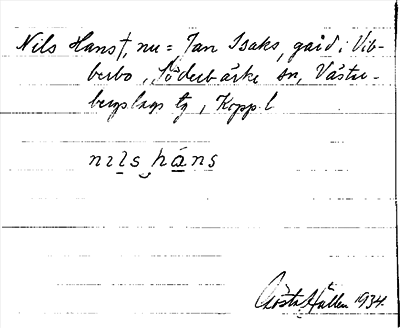 Nils Hans†, nu = Jan Isaks, gård i Vib-
berbo, Söderbärke sn, Väster-
bergslags tg, Kopp. l
nıls hána̲ns
Gösta Hallén 1934.